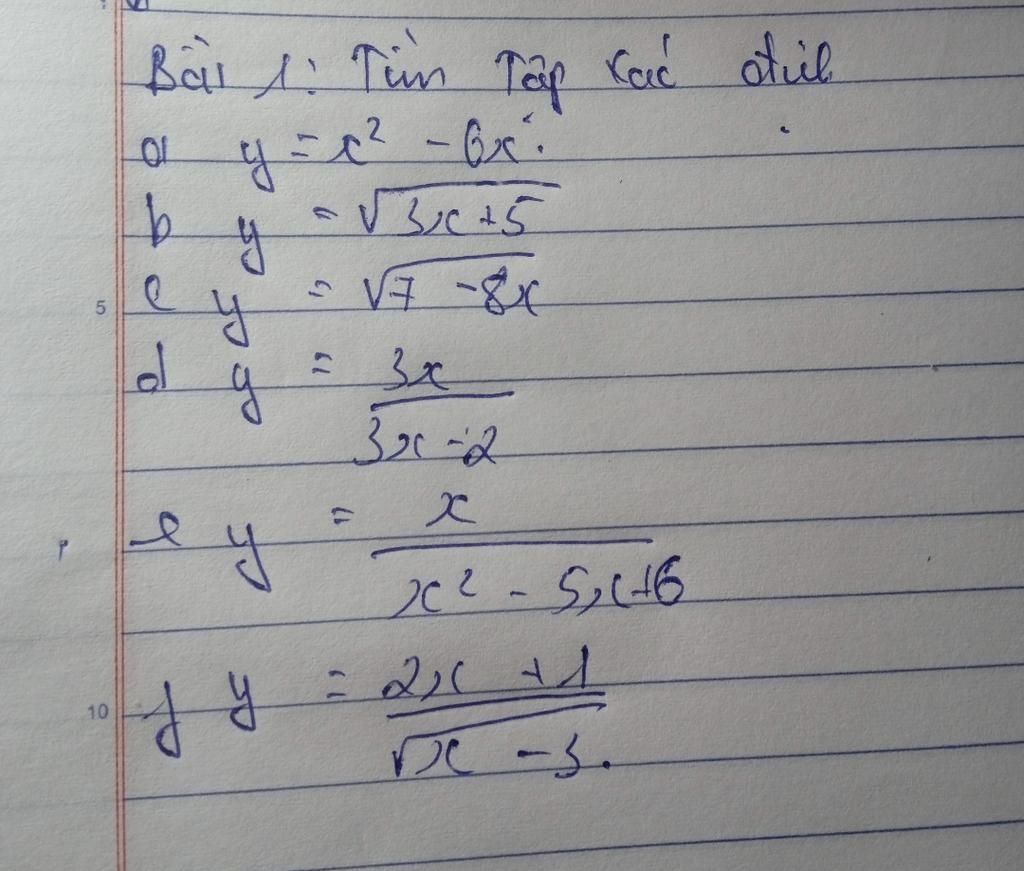 Bài 1: Tìm Tập xác định
a y = x² - 6x.
b y = √(3x+5)
c y = √(7 - 8x)
d y = 3x / (3x - 2)
e y = x / (x² - 5x+6)
f y = (2x + 1) / √(x - 3).
5
10